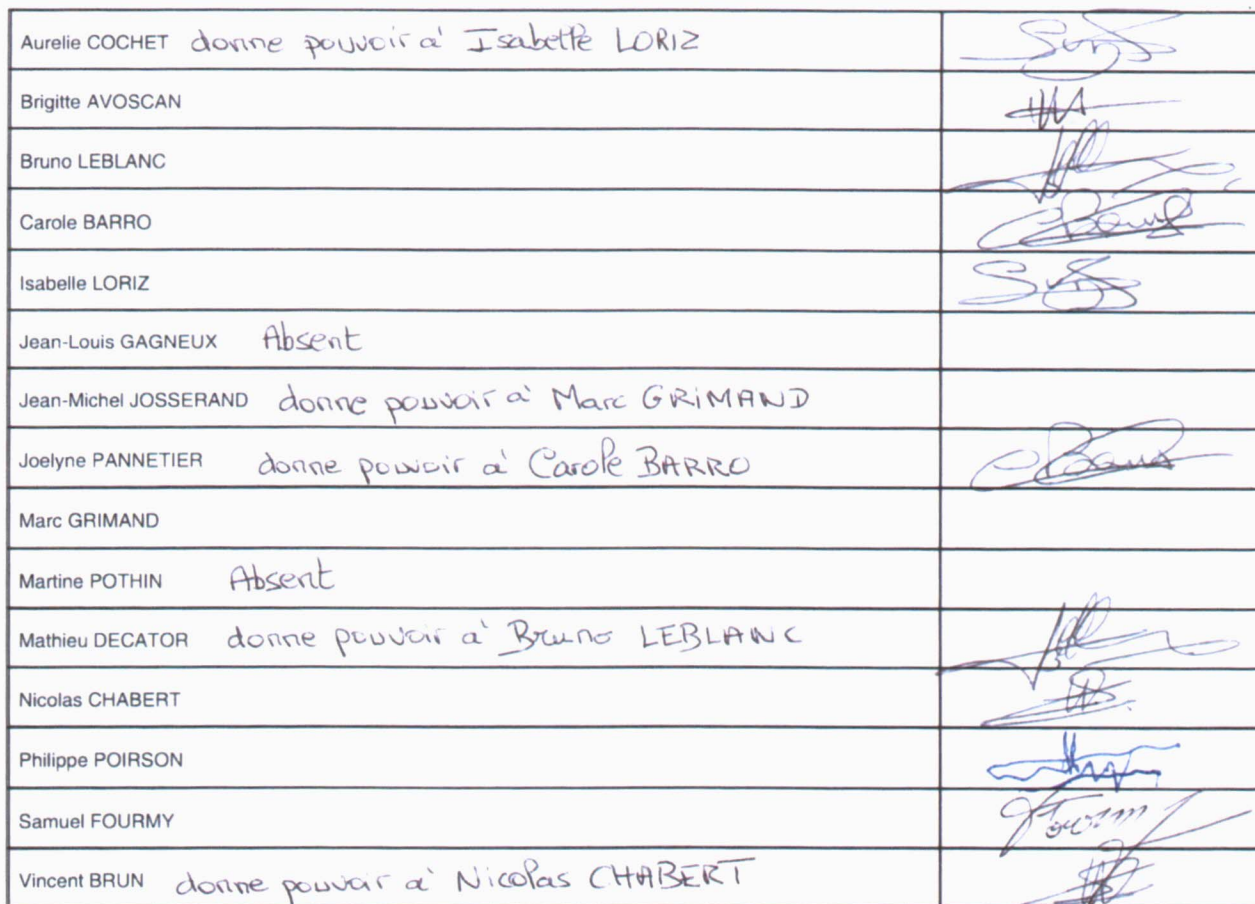 Aurelie COCHET donne pouvoir à Isabelle LORIZ
Brigitte AVOSCAN
Bruno LEBLANC
Carole BARRO
Isabelle LORIZ
Jean-Louis GAGNEUX Absent
Jean-Michel JOSSERAND donne pouvoir à Marc GRIMAND
Joelyne PANNETIER donne pouvoir à Carole BARRO
Marc GRIMAND
Martine POTHIN Absent
Mathieu DECATOR donne pouvoir à Bruno LEBLANC
Nicolas CHABERT
Philippe POIRSON
Samuel FOURMY
Vincent BRUN donne pouvoir à Nicolas CHABERT